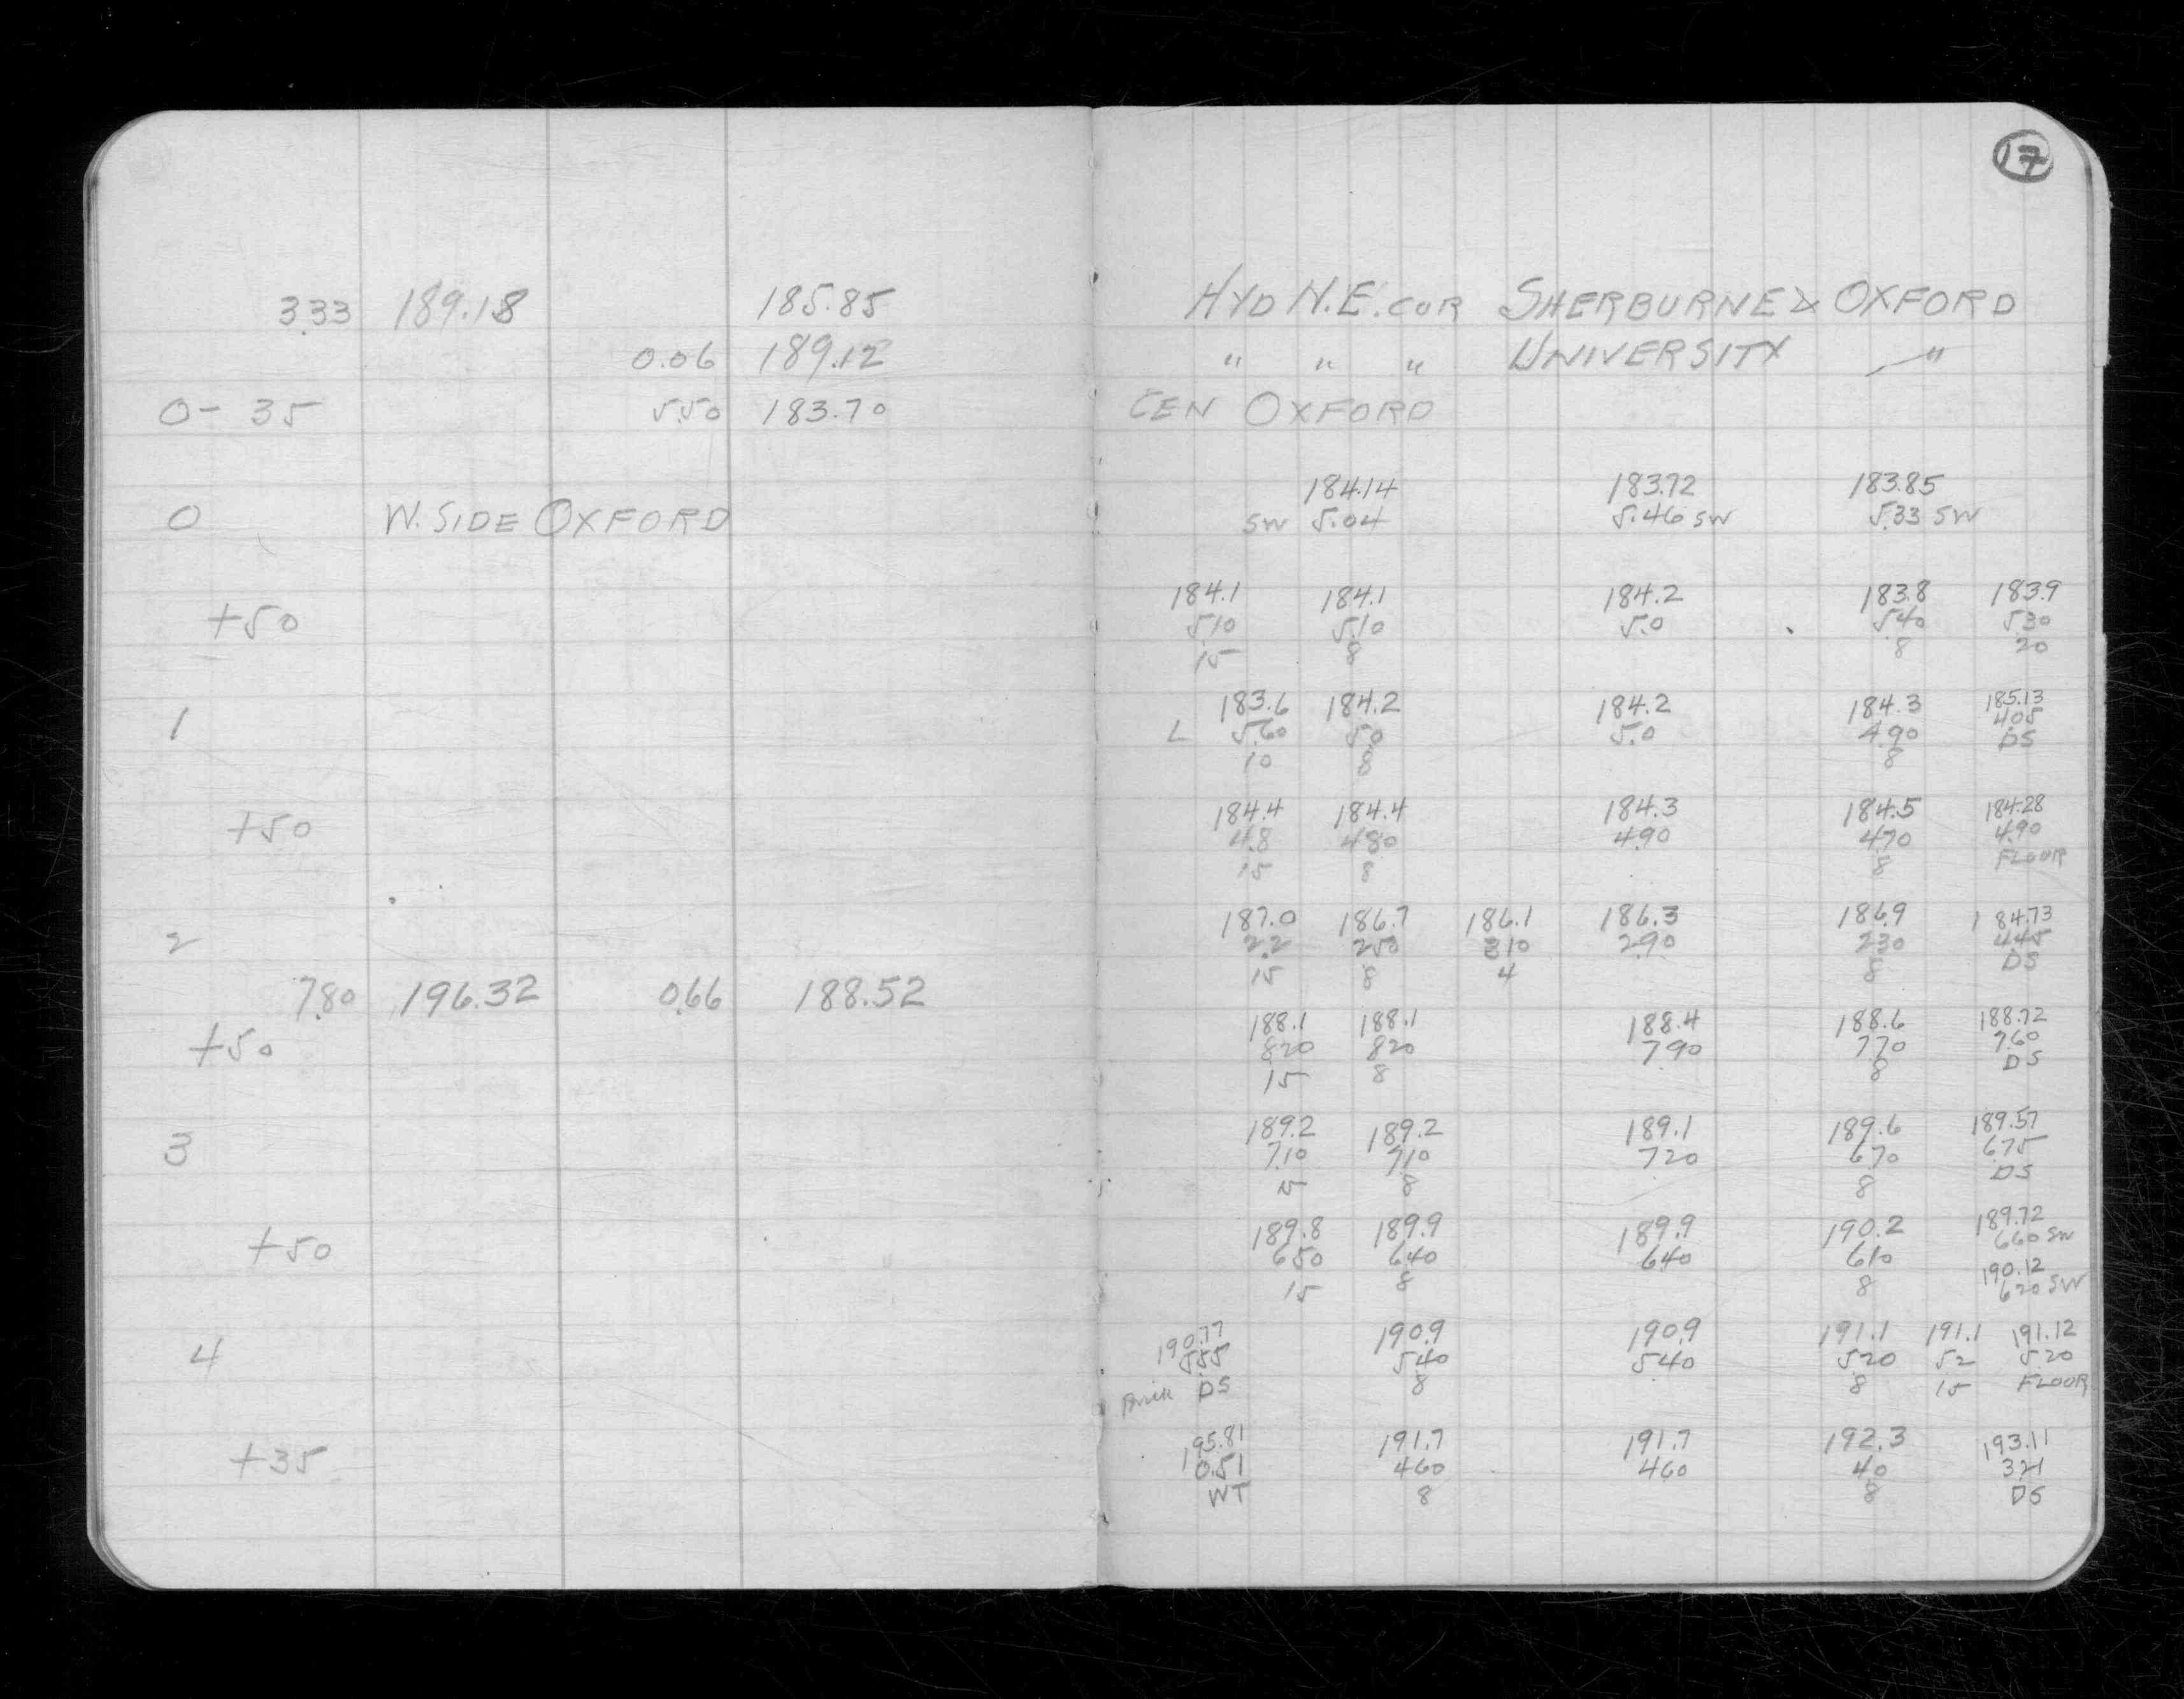 17
3.33 189.18 185.85 HYD N.E. COR SHERBURNE & OXFORD
0.06 189.12 " " " UNIVERSITY "
0- 35 5.50 183.70 CEN OXFORD
184.14 183.72 183.85
0 W. SIDE OXFORD SW 5.04 5.46 SW 5.33 SW
184.1 184.1 184.2 183.8 183.9
+50 5.10 5.10 5.0 5.40 5.30
15 8 8 20
183.6 184.2 184.2 184.3 185.13
1 L 5.60 5.0 5.0 4.90 4.05
10 8 8 DS
184.4 184.4 184.3 184.5 184.28
+50 4.8 4.80 4.90 4.70 4.90
15 8 8 FLOOR
187.0 186.7 186.1 186.3 186.9 184.73
2 2.2 2.50 3.10 2.90 2.30 4.45
15 8 4 8 DS
7.80 196.32 0.66 188.52
188.1 188.1 188.4 188.6 188.72
+50 8.20 8.20 7.90 7.70 7.60
15 8 8 DS
189.2 189.2 189.1 189.6 189.57
3 7.10 7.10 7.20 6.70 6.75
15 8 8 DS
189.8 189.9 189.9 190.2 189.72
+50 6.50 6.40 6.40 6.10 6.60 SW
15 8 8 190.12
6.20 SW
190.77 190.9 190.9 191.1 191.1 191.12
4 5.55 5.40 5.40 5.20 5.2 5.20
Brick DS 8 8 15 FLOOR
195.81 191.7 191.7 192.3 193.11
+35 0.51 4.60 4.60 4.0 3.21
WT 8 8 DS